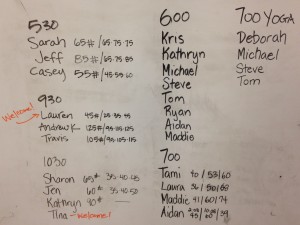 530
Sarah 65#/65-75-75
Jeff 85#/65-75-35
Casey 55#/45-55-60
930
Welcome!
Lauren 45#/25-35-45
Andrew K 125#/95-115-125
Travis 105#/95-105-115
1030
Sharon 65# 35-40-45
Jen 60# 35-40-50
Kathryn 40# —
Tina - Welcome!
600
Kris
Kathryn
Michael
Steve
Tom
Ryan
Aidan
Maddie
700
Tami 40/53/60
Laura 36/50/68
Maddie 41/60/74
Aidan
700 YOGA
Deborah
Michael
Steve
Tom